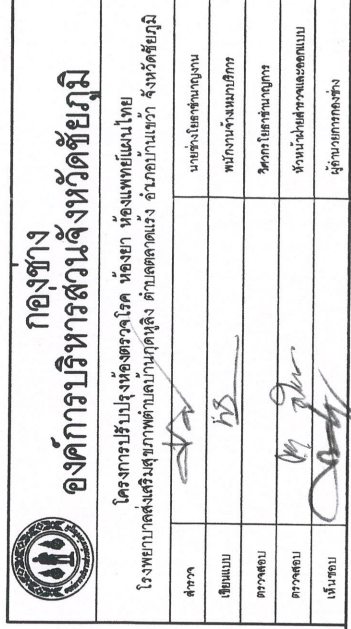 กองช่าง
องค์การบริหารส่วนจังหวัดชัยภูมิ
โครงการปรับปรุงห้องตรวจโรค ห้องยา ห้องแพทย์แผนไทย
โรงพยาบาลส่งเสริมสุขภาพตำบลบ้านกุดหูลิง ตำบลตลาดแร้ง อำเภอบ้านเขว้า จังหวัดชัยภูมิ
สำรวจ นายช่างโยธาชำนาญงาน
เขียนแบบ พนักงานจ้างเหมาบริการ
ตรวจสอบ วิศวกรโยธาชำนาญการ
ตรวจสอบ หัวหน้าฝ่ายสำรวจและออกแบบ
เห็นชอบ ผู้อำนวยการกองช่าง